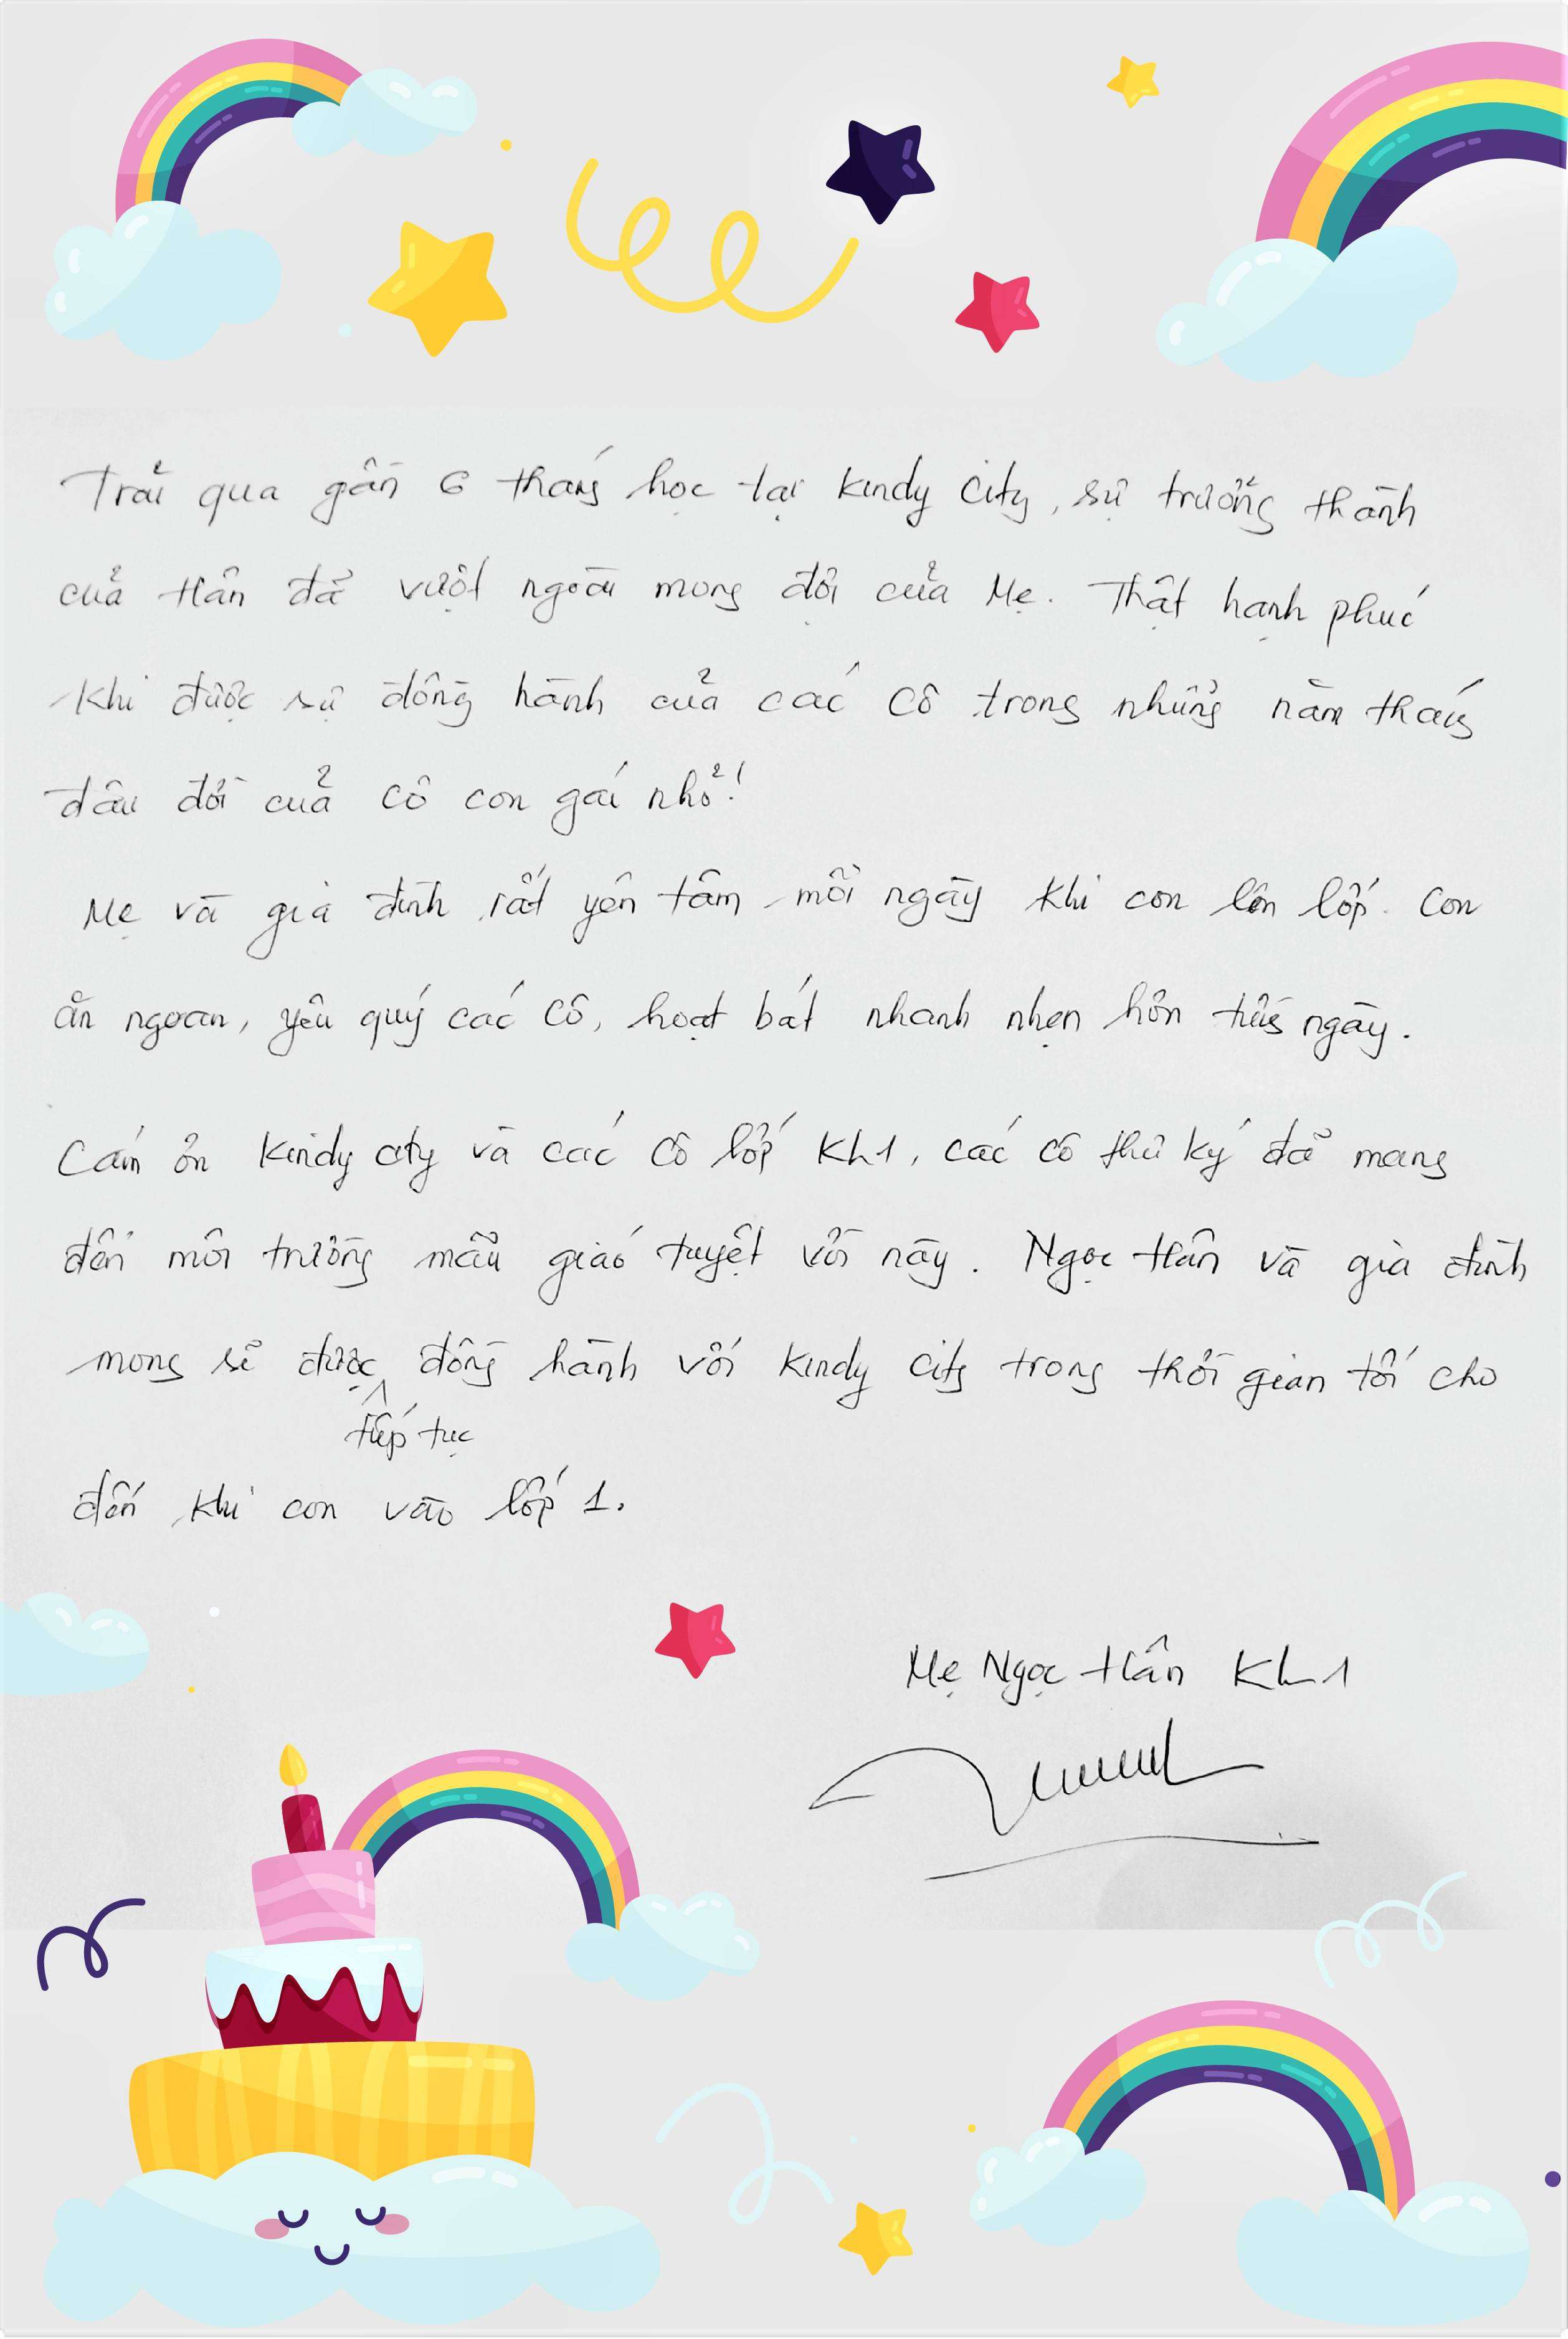 Trải qua gần 6 tháng học tại Kindy City, sự trưởng thành
của Hân đã vượt ngoài mong đợi của Mẹ. Thật hạnh phúc
khi được sự đồng hành của các cô trong những năm tháng
đầu đời của cô con gái nhỏ!
Mẹ và gia đình rất yên tâm mỗi ngày khi con lên lớp. Con
ăn ngoan, yêu quý các cô, hoạt bát nhanh nhẹn hơn từng ngày.
Cám ơn Kindy City và các cô lớp KH1, các cô thư ký đã mang
đến môi trường mẫu giáo tuyệt vời này. Ngọc Hân và gia đình
mong sẽ được đồng hành với Kindy City trong thời gian tới cho
tiếp tục
đến khi con vào lớp 1.
Mẹ Ngọc Hân KH1